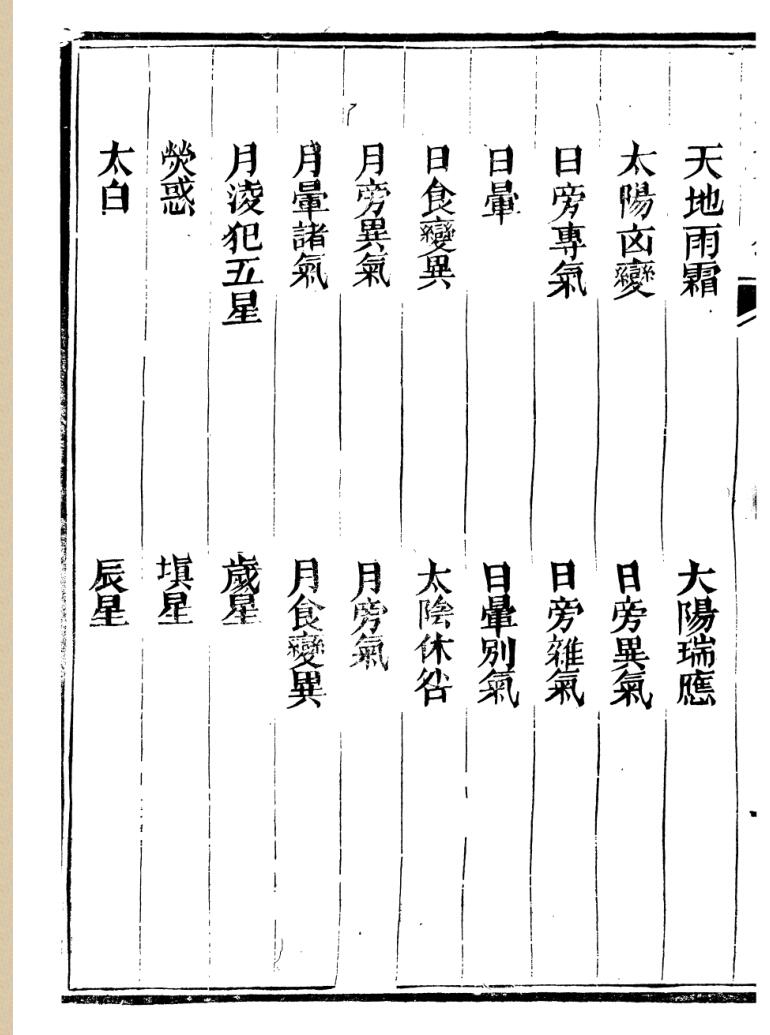 天地雨霜　大陽瑞應
太陽凶變　日旁異氣
日旁專氣　日旁雜氣
日暈　日暈別氣
日食變異　太陰休咎
月旁異氣　月旁氣
月暈諸氣　月食變異
月淩犯五星　歲星
熒惑　塡星
太白　辰星